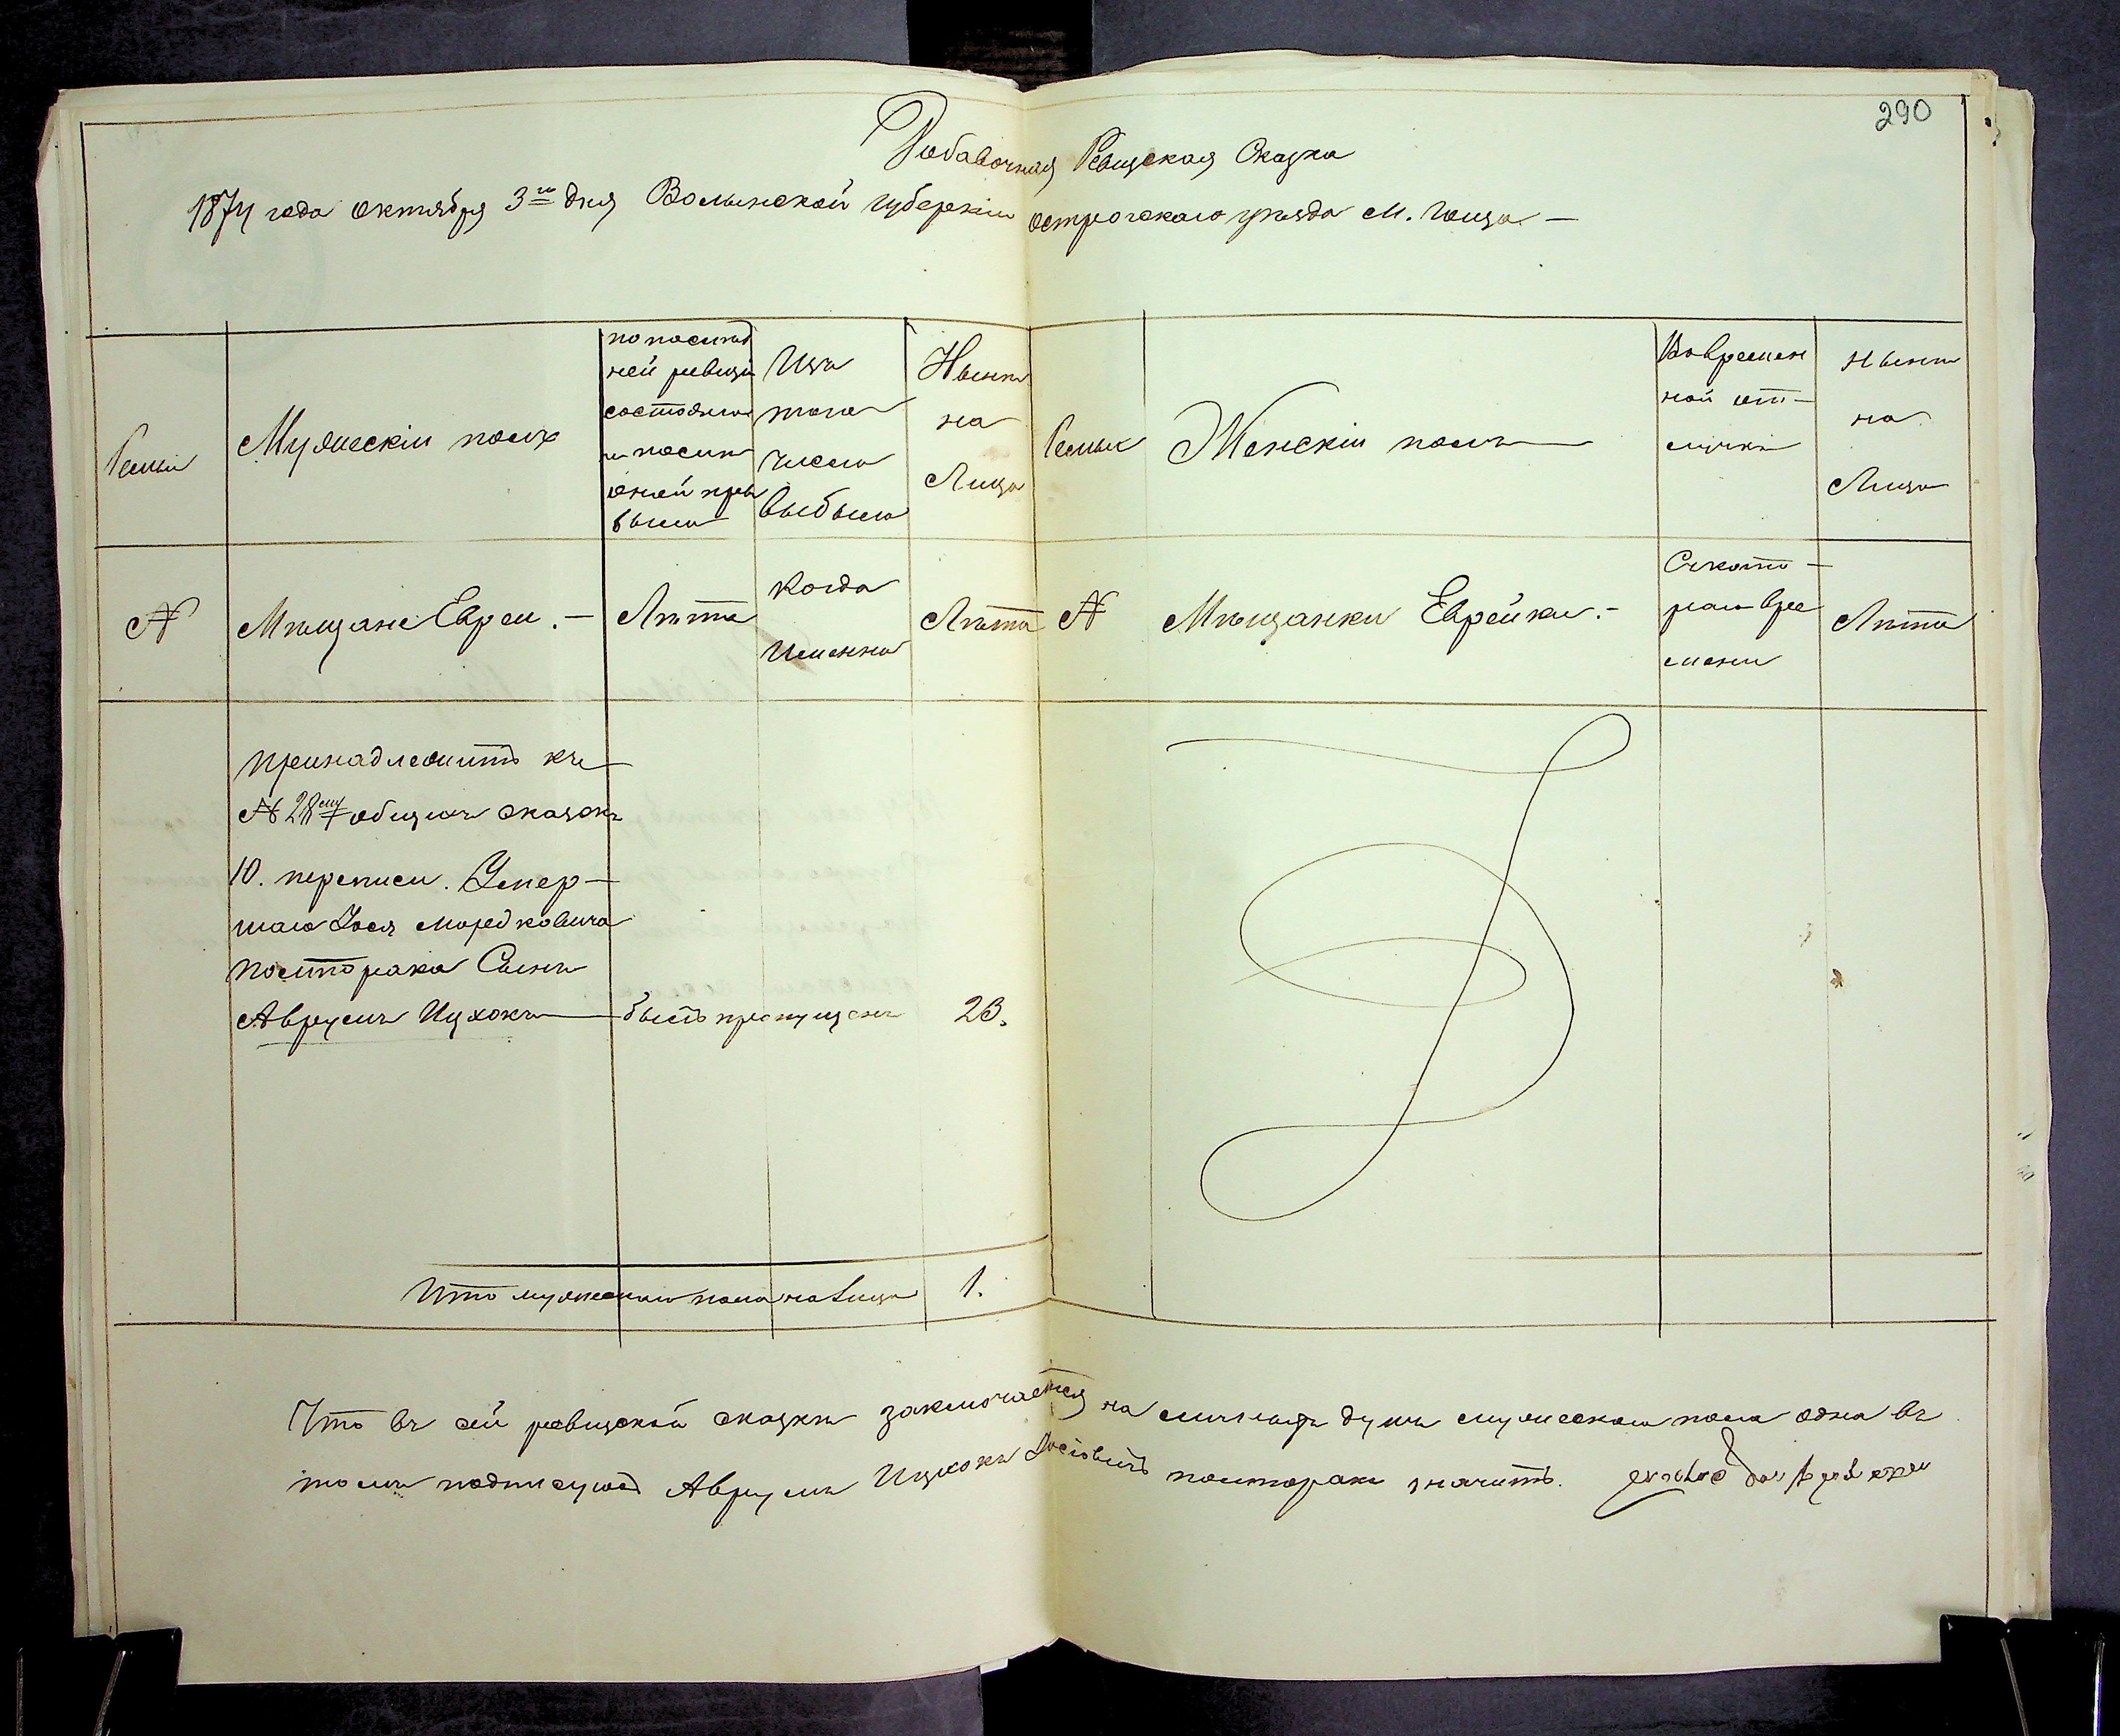 290
Добавочная Ревизская Сказка
1874 года октября 3го дня Волынской губернии острогского уезда М. Гоща —
Семьи
Мужескій полъ
по послед
ней ревизіи
состояло
и после
оной при
было
Изъ
того
числа
выбыло
Ныне
на
Лицо
Семьи
Женскій полъ
Вовремен
ной от-
лучки
Ныне
на
Лицо
№
Мещане Евреи. —
Лета
Когда
Именно
Лета
№
Мещанки Еврейки. -
Съ кото-
раго вре
мени
Лета
принадлежитъ къ
№ 28му общихъ сказокъ
10. переписи. Умер-
шаго Іося Мордковича
Полторака Сынъ
Аврумъ Ицхокъ
былъ пропущенъ 23.
Итого мужескаго пола на лицо 1.
Что въ сей ревизской сказки заключается на лицо душъ мужескаго пола одна въ
томъ подписуюсь Аврумъ Ицхокъ Іосіовичъ полторакъ значитъ.